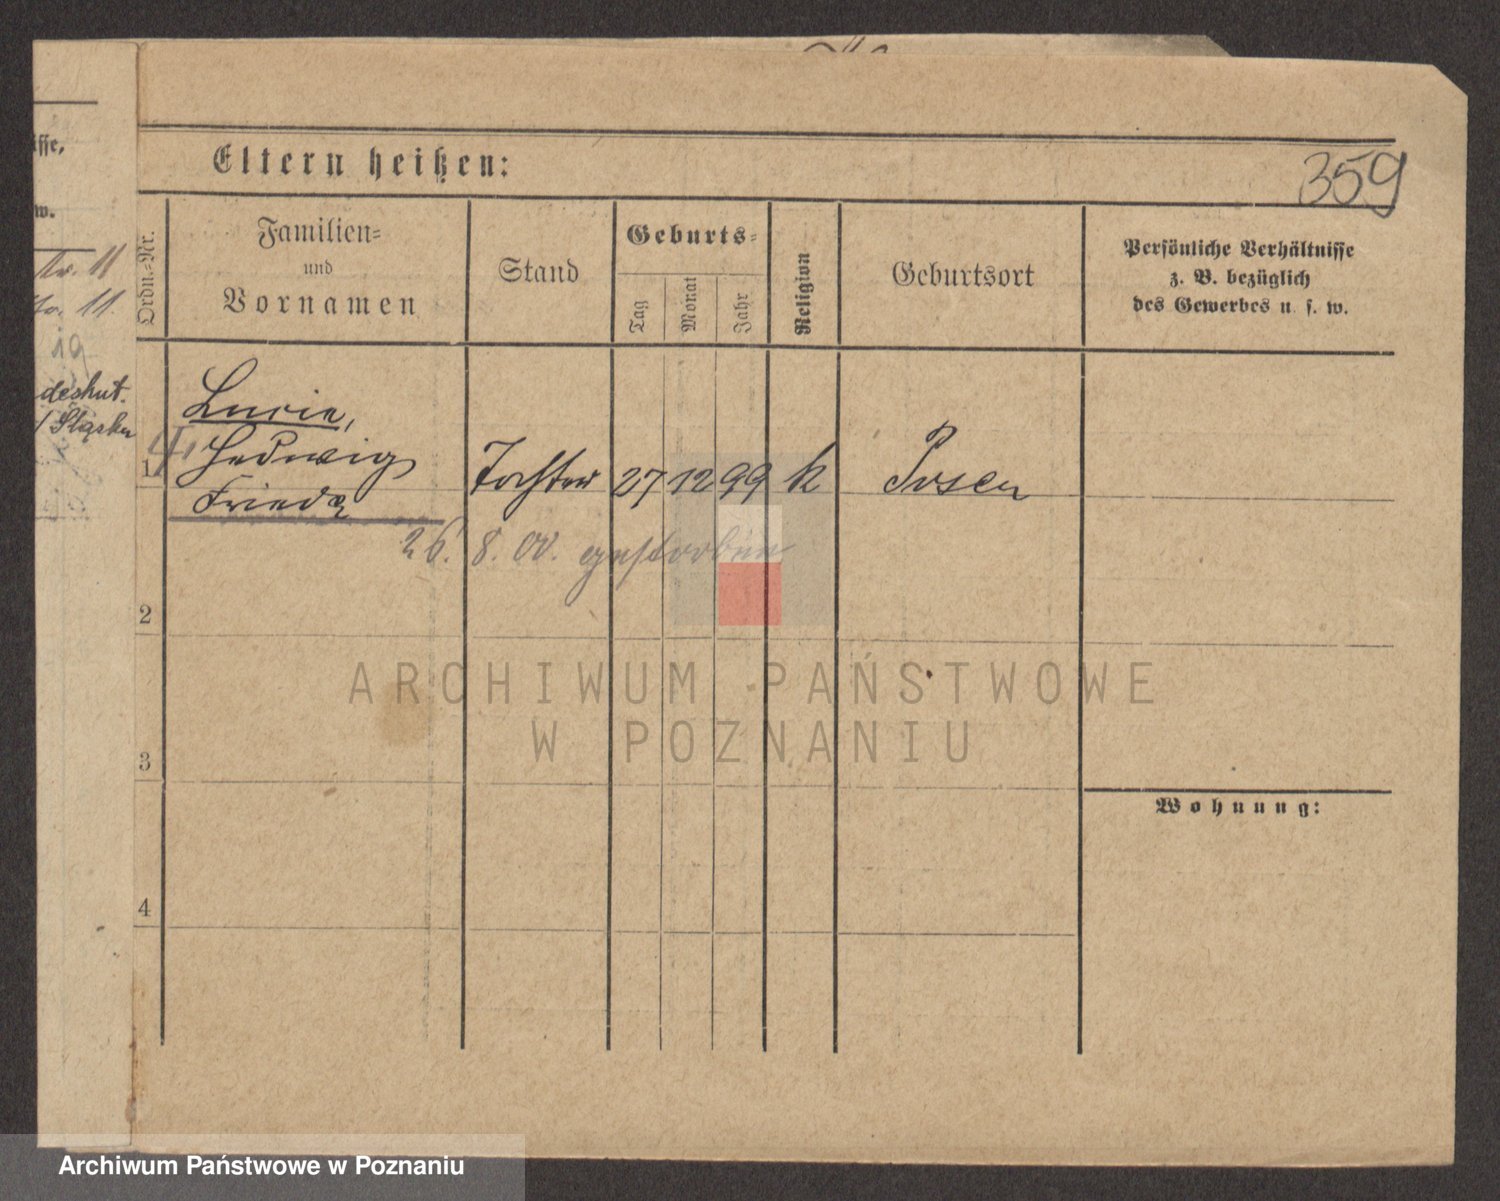 isse,
w.
Nr. 11
No. 11.
19
deshut.
/ Sląsku
Eltern heißen:
359
Ordn.-Nr.
Familien=
und
Vornamen
Stand
Geburts=
Tag
Monat
Jahr
Religion
Geburtsort
Persönliche Verhältnisse
z. B. bezüglich
des Gewerbes u. s. w.
1
Lucie,
Hedwig
Frieda
Tochter 27 12 99 k Posen
26. 8. 00. gestorben
2
3
4
Wohnung:
ARCHIWUM PAŃSTWOWE
W POZNANIU
Archiwum Państwowe w Poznaniu